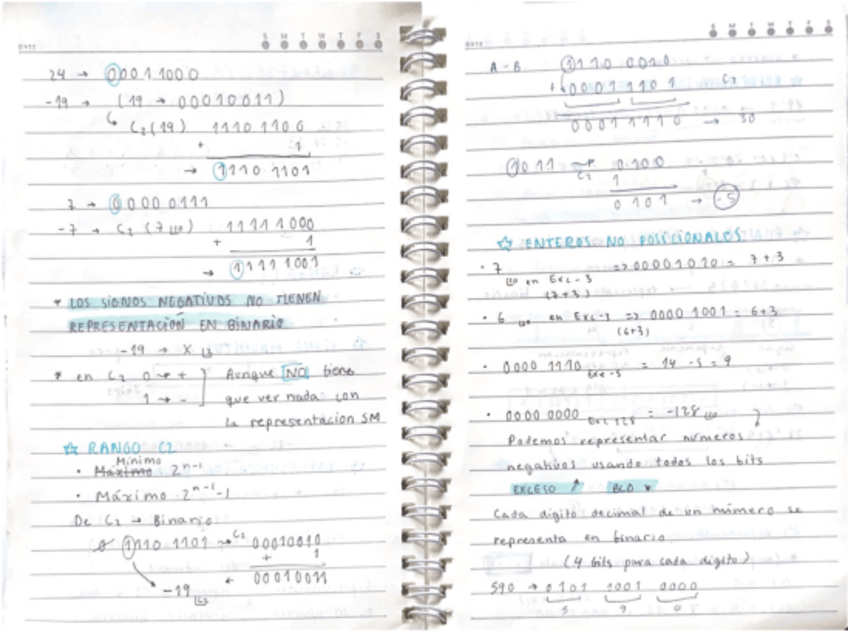 DATE
S M T W T F S
24 → 00011000
-19 → (19 → 00010011)
C2(19) 11101100
+ 1
→ 11101101
7 → 00000111
-7 → C2 (7
11111000
+ 1
→ 11111001
* LOS SIGNOS NEGATIVOS NO TIENEN
REPRESENTACIÓN EN BINARIO
-19 → X
* en C2 0 → +
1 → -
Aunque NO tiene
que ver nada con
la representacion SM
☆ RANGO C2
Mínimo
• Máximo 2^n-1
• Máximo 2^n-1-1
De C2 → Binario
11101101 → C2 00010010
+ 1
-19 C2 ← 00010011
DATE
S M T W T F S
A - B 11100010
+ 00011101 C2
00011110 → 30
1011 → C2 0100
1
0101 → -5
☆ ENTEROS NO POSICIONALES
• 7 en Exc-3 => 00001010 = 7+3
(7+3)
• 6 en Exc-3 => 00001001 = 6+3
(6+3)
• 0000 1110 Exc-5 = 14 - 5 = 9
• 0000 0000 Exc 128 = -128
Podemos representar números
negativos usando todos los bits
EXCESO ↑ BCD
Cada digito decimal de un número se
representa en binario
(4 bits para cada digito)
590 → 0101 1001 0000
5 9 0